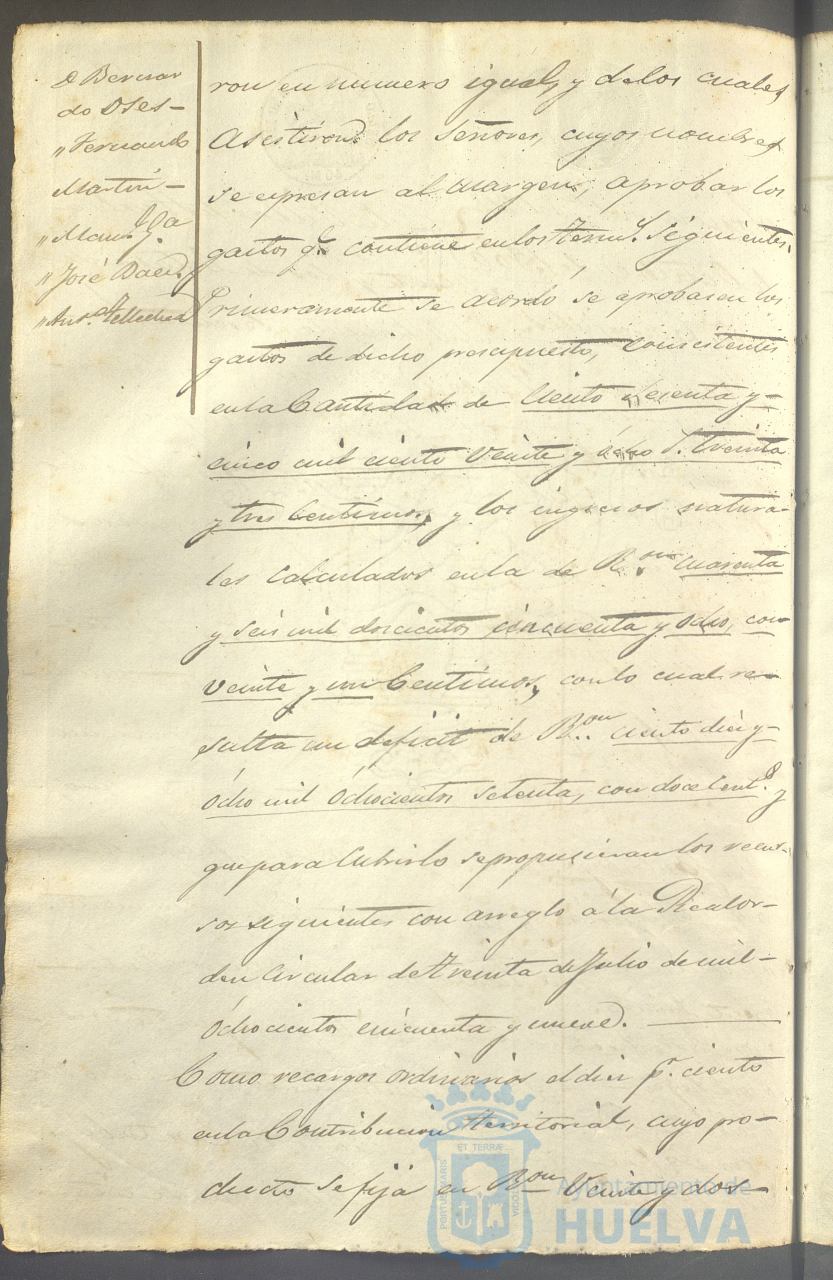 D Bernar
do Oses -
" Fernando
Martin -
" Man.l Ga
" José Baez
" Ant.o Tellechea
ron en numero igual, y delos cuales
Asistieron los Señores, cuyos nombres
se espresan al margen, aprobar los
gastos q.e contiene en los term.s siguientes.
Primeramente se acordó se aprobasen los
gastos de dicho presupuesto, consistentes
en la Cantidad de Ciento sesenta y-
cinco mil ciento Veinte y ócho r.s treinta
y tres Centimos, y los ingresos natura-
les calculados en la de R.s on cuarenta
y seis mil doscientos cincuenta y ócho, con
veinte y un Centimos, con lo cual re-
sulta un deficit de R.s on ciento diez y-
ócho mil óchocientos setenta, con doce Cent.s y
que para Cubrirlo se propusieran los recur-
sos siguientes con arreglo á la Real or-
den Circular de treinta de Julio de mil-
óchocientos cincuenta y nueve. —
Como recargos ordinarios el diez p.r ciento
en la Contribucion territorial, cuyo pro-
ducto se fija en R.s on Veinte y dos-
ET TERRÆ
PORTUS MARIS
CUSTODIA
Ayuntamiento de
HUELVA